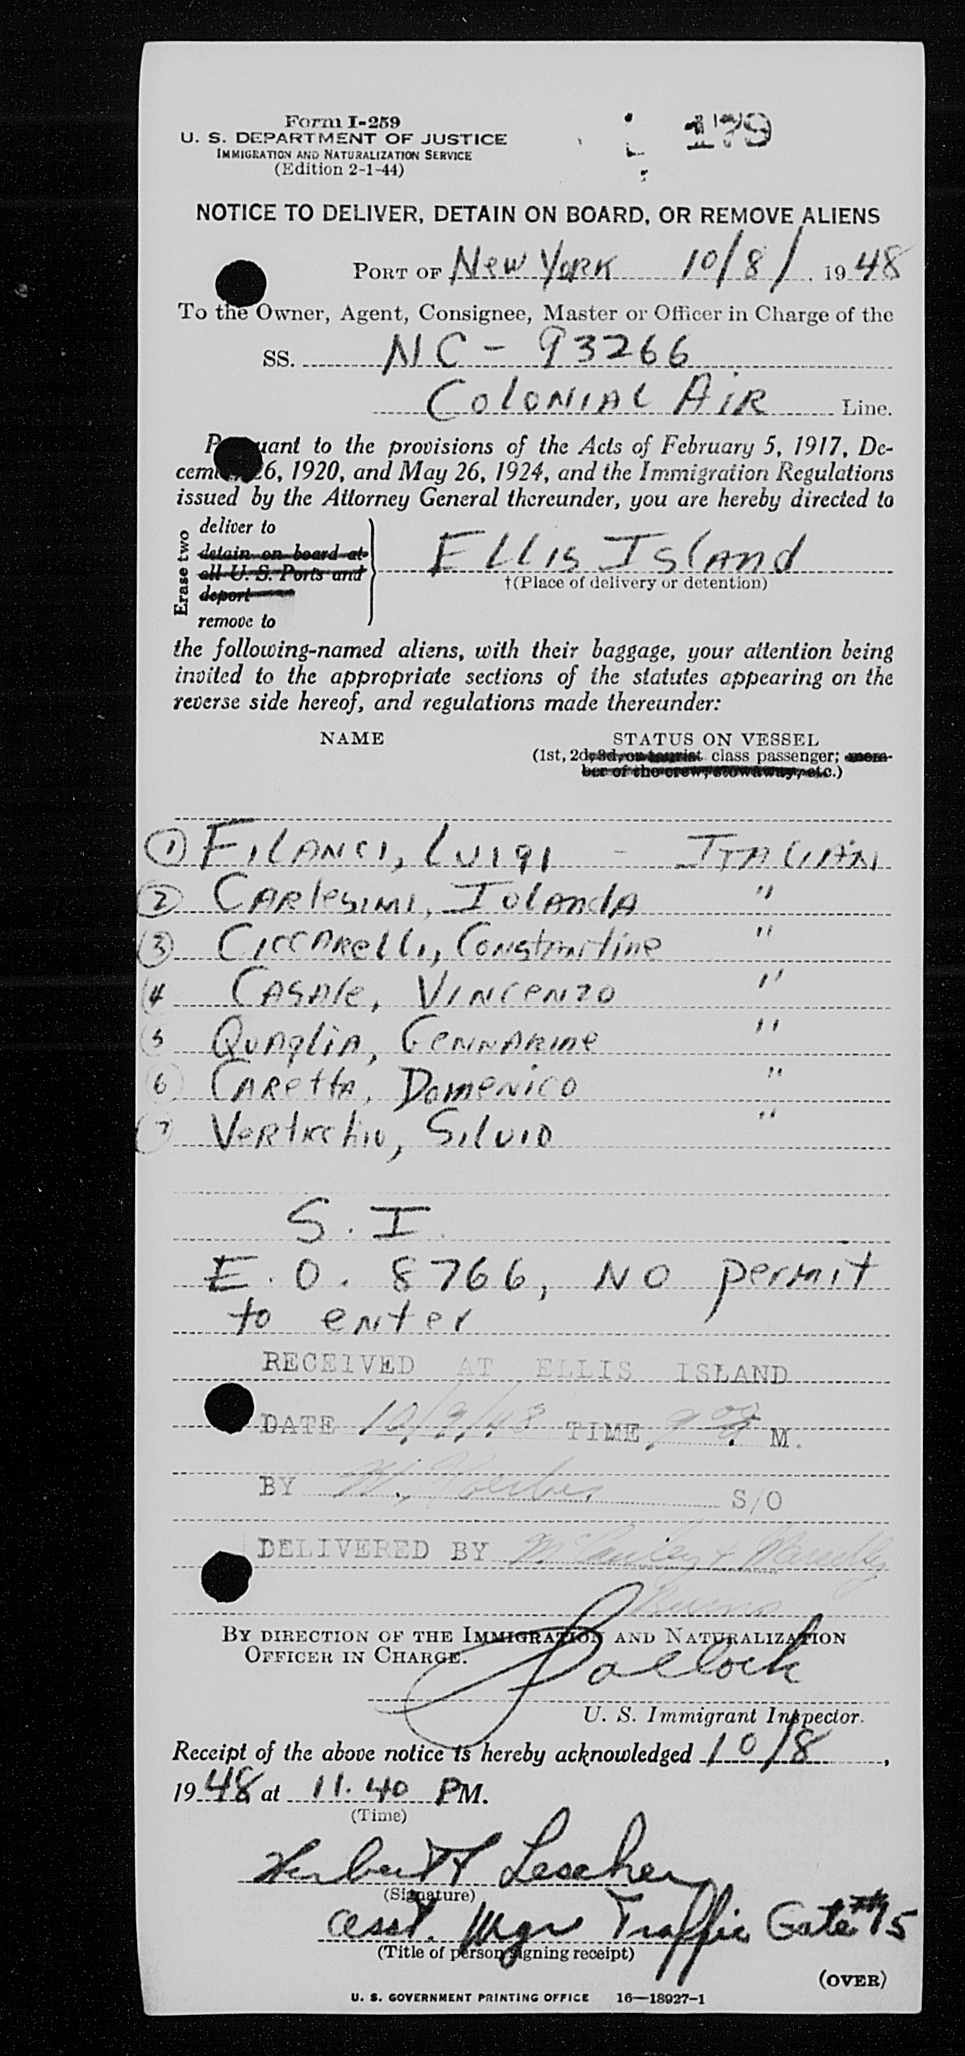 Form I-259
179
U. S. DEPARTMENT OF JUSTICE
IMMIGRATION AND NATURALIZATION SERVICE
(Edition 2-1-44)
NOTICE TO DELIVER, DETAIN ON BOARD, OR REMOVE ALIENS
PORT OF New York 10/8/, 1948
To the Owner, Agent, Consignee, Master or Officer in Charge of the
SS. NC-93266
Colonial Air Line.
Pursuant to the provisions of the Acts of February 5, 1917, De-
cember 26, 1920, and May 26, 1924, and the Immigration Regulations
issued by the Attorney General thereunder, you are hereby directed to
Erase two
deliver to
detain on board at
all U. S. Ports and
deport
remove to
Ellis Island
†(Place of delivery or detention)
the following-named aliens, with their baggage, your attention being
invited to the appropriate sections of the statutes appearing on the
reverse side hereof, and regulations made thereunder:
NAME STATUS ON VESSEL
(1st, 2d, 3d, or tourist class passenger; mem-
ber of the crew, stowaway, etc.)
1 Filanci, Luigi - Italian
2 Carlesimi, Iolanda "
3 Ciccarelli, Constantine "
4 Casale, Vincenzo "
5 Quaglia, Gennarine "
6 Caretta, Domenico "
7 Silvio "
S. I.
E. O. 8766, No permit
to enter
RECEIVED AT ELLIS ISLAND
DATE 10/9/48 TIME M.
BY S/O
DELIVERED BY
BY DIRECTION OF THE IMMIGRATION AND NATURALIZATION
OFFICER IN CHARGE.
U. S. Immigrant Inspector.
Receipt of the above notice is hereby acknowledged 10/8,
1948 at 11.40 PM.
(Time)
(Signature)
Asst. Mgr Traffic Gate #15
(Title of person signing receipt)
(OVER)
U. S. GOVERNMENT PRINTING OFFICE 16—18927-1